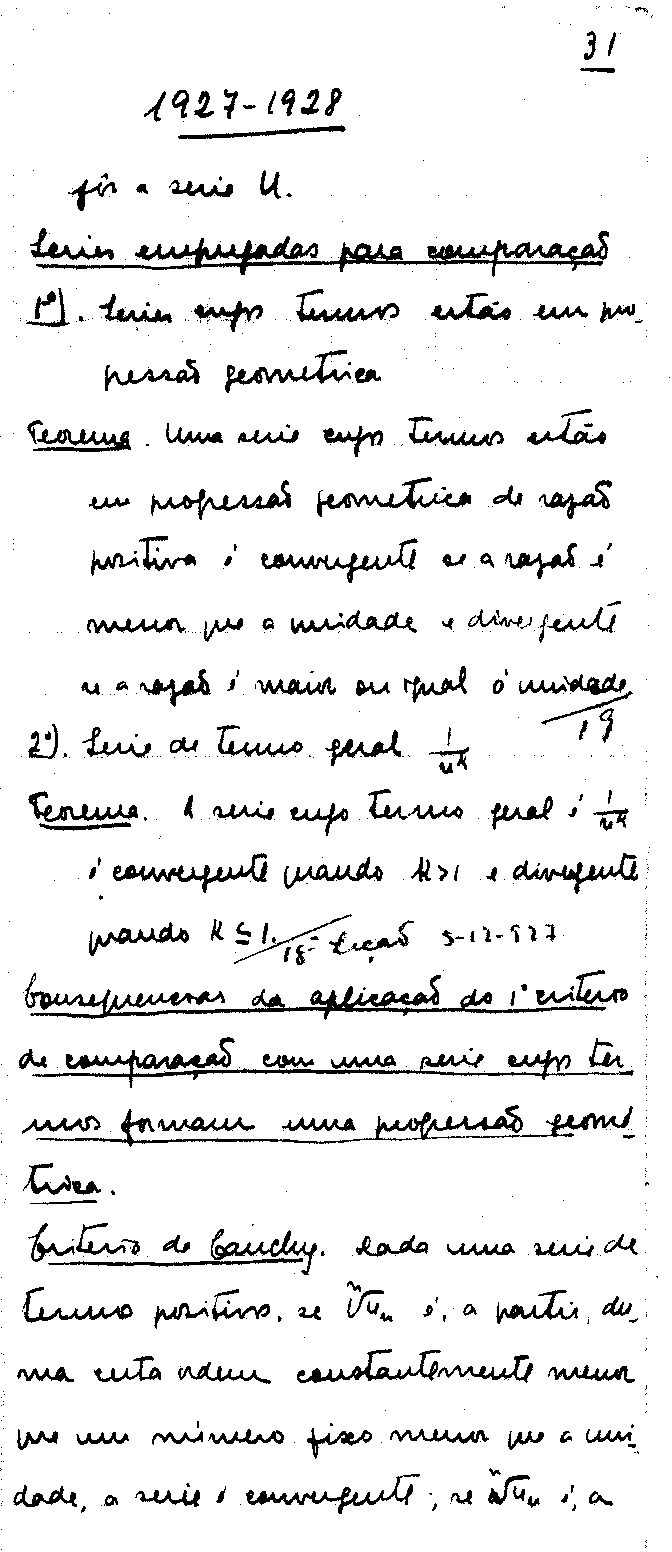 31
1927-1928
fôr a serie U.
Series empregadas para comparação
1º). Series cujos termos estão em pro-
gressão geometrica
Teorema. Uma serie cujos termos estão
em progressão geometrica de razão
positiva é convergente se a razão é
menor que a unidade e divergente
se a razão é maior ou igual á unidade
19
2º). Serie de termo geral 1/n^k
Teorema. A serie cujo termo geral é 1/n^k
é convergente quando k>1 e divergente
quando k ≤ 1. 18ª Lição 5-12-927
Consequencias da aplicação do 1º criterio
de comparação com uma serie cujos ter-
mos formam uma progressão geomé-
trica.
Criterio de Cauchy. Dada uma serie de
termos positivos, se ⁿ√uₙ é, a partir du-
ma certa ordem constantemente menor
que um número fixo menor que a uni-
dade, a serie é convergente; se ⁿ√uₙ é, a